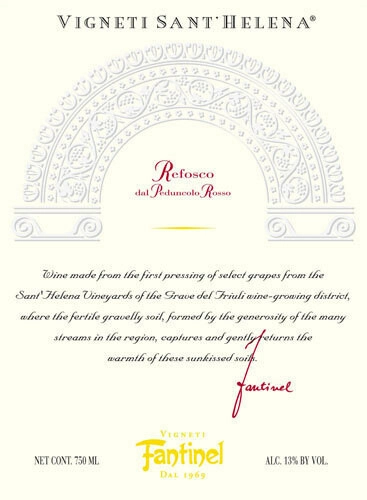 VIGNETI SANT'HELENA®
Refosco
dal Peduncolo Rosso
Wine made from the first pressing of select grapes from the
Sant'Helena Vineyards of the Grave del Friuli wine-growing district,
where the fertile gravelly soil, formed by the generosity of the many
streams in the region, captures and gently returns the
warmth of these sunkissed soils.
Fantinel
VIGNETI
Fantinel
DAL 1969
NET CONT. 750 ML
ALC. 13% BY VOL.